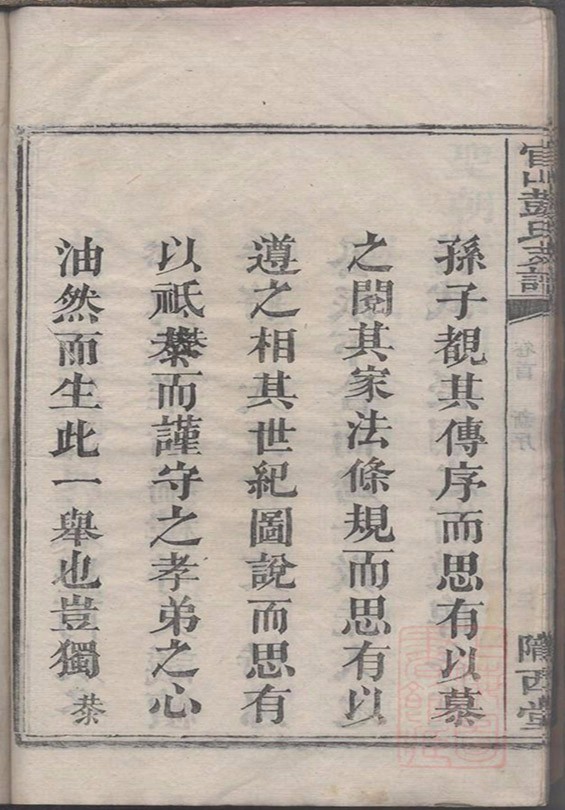 官山彭氏支譜
卷首 新序
隴西堂
孫子覩其傳序而思有以慕
之閱其家法條規而思有以
遵之相其世紀圖說而思有
以祗恭而謹守之孝弟之心
油然而生此一舉也豈獨恭